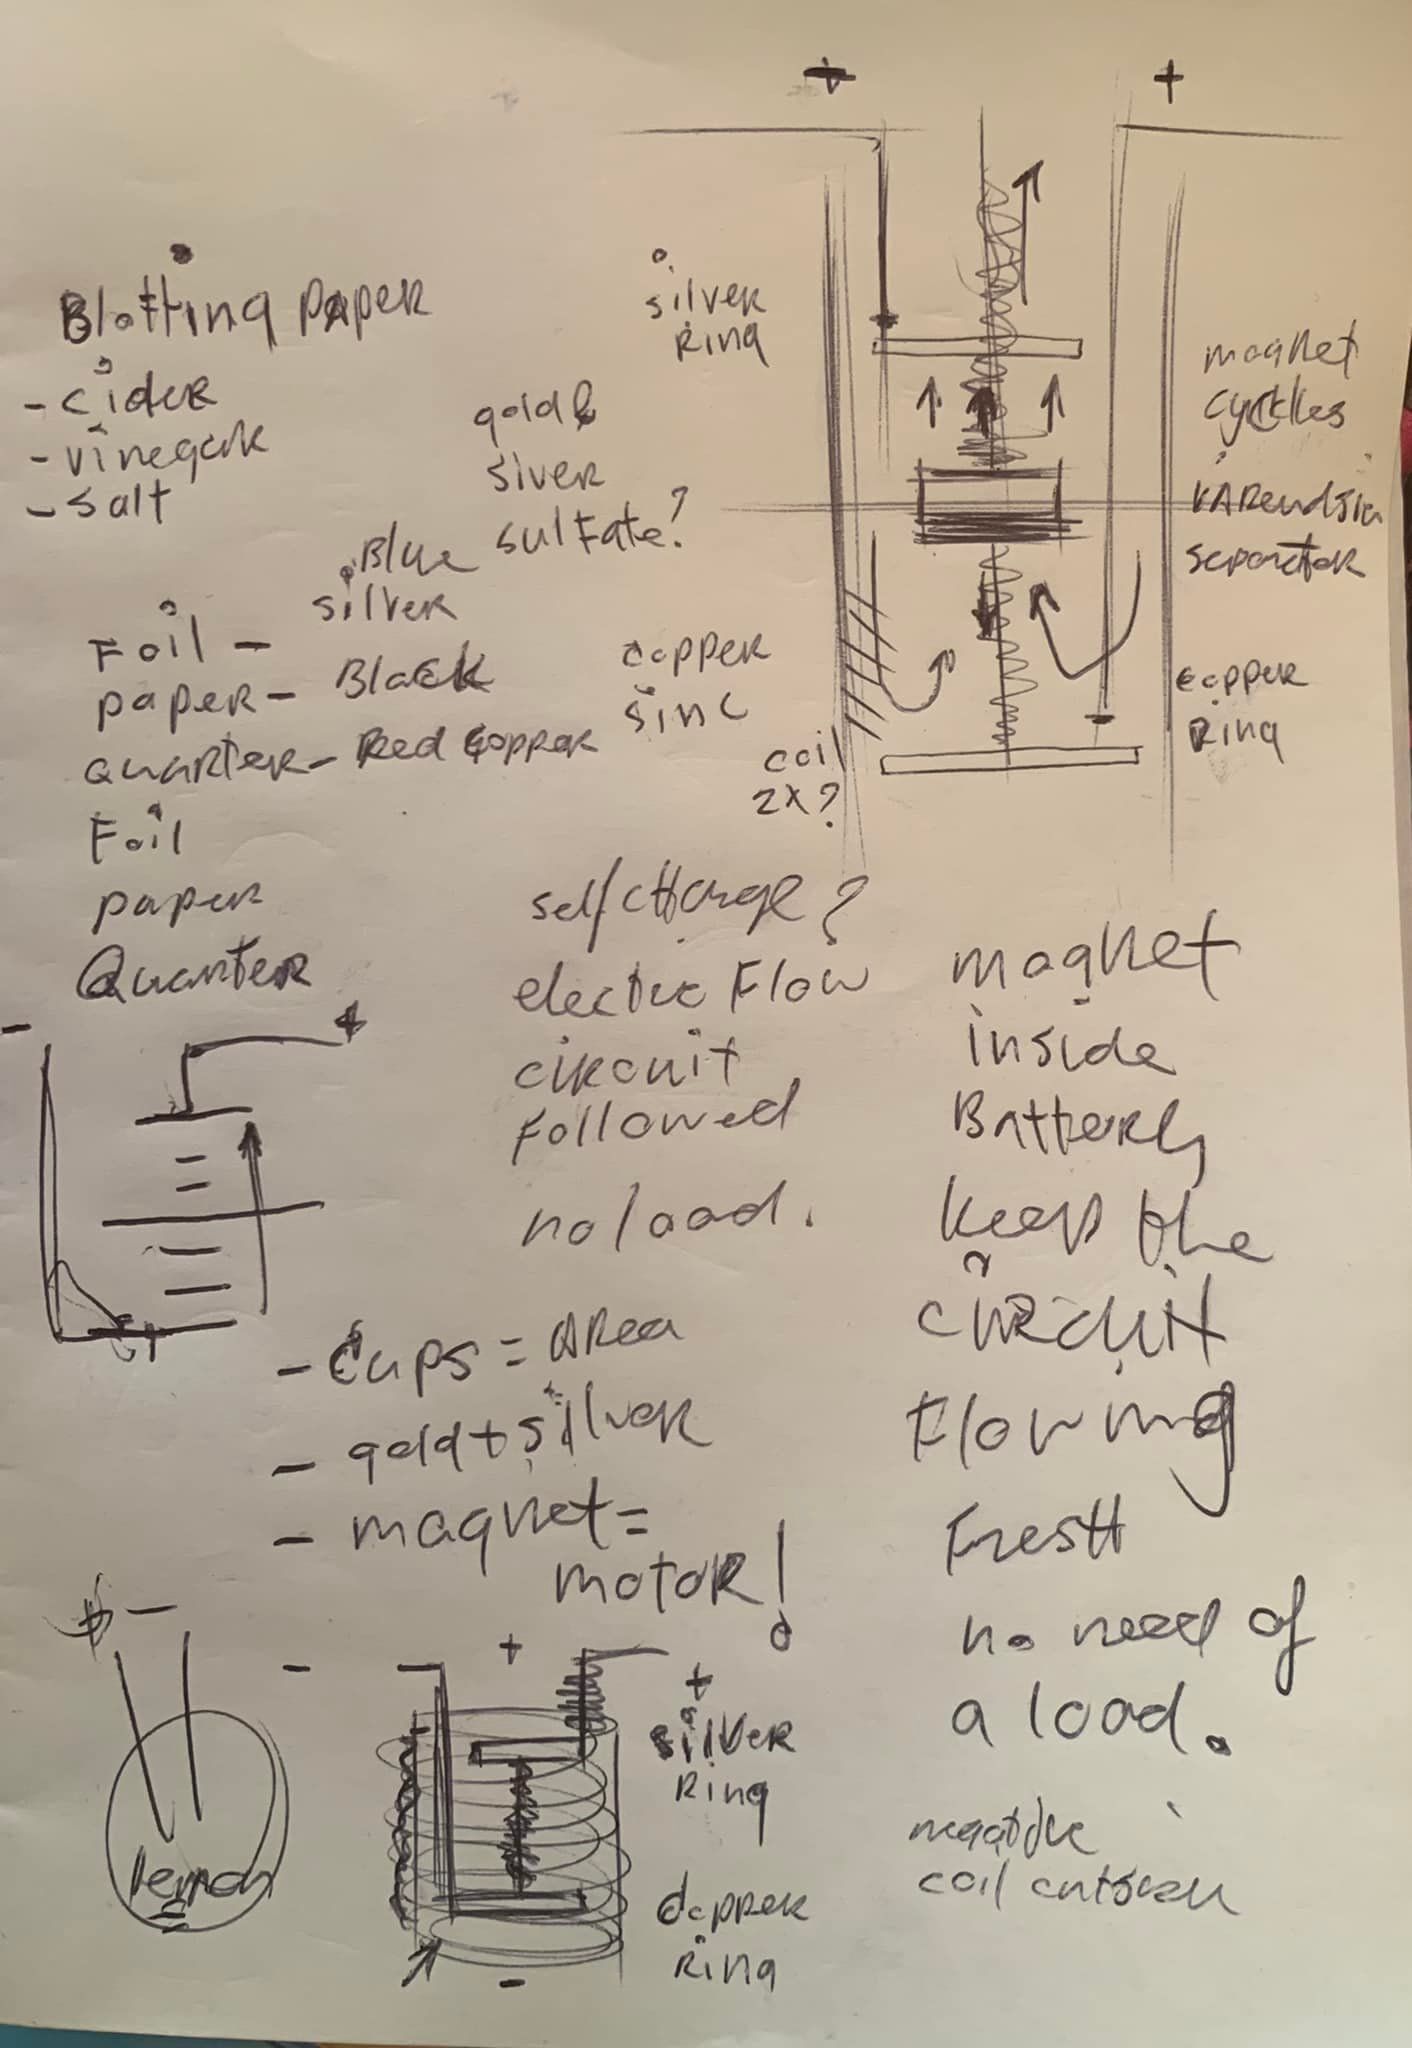 +
+
Blotting Paper
- cider
- vinegar
- salt
silver
Ring
gold &
siver
sulfate?
Blue
silver
Foil -
paper - Black
quarter - Red Copper
Foil
paper
Quarter
copper
sinc
coil
2x?
magnet
cyckles
separator
copper
Ring
- +
self charge?
electric Flow
circuit
Followed
no load.
magnet
inside
Battery
keep the
circuit
Flowing
Fresh
no need of
a load.
- Cups = Area
- gold + silver
- magnet =
motor!
-
lemon
- + +
silver
Ring
copper
Ring
-
negative
coil